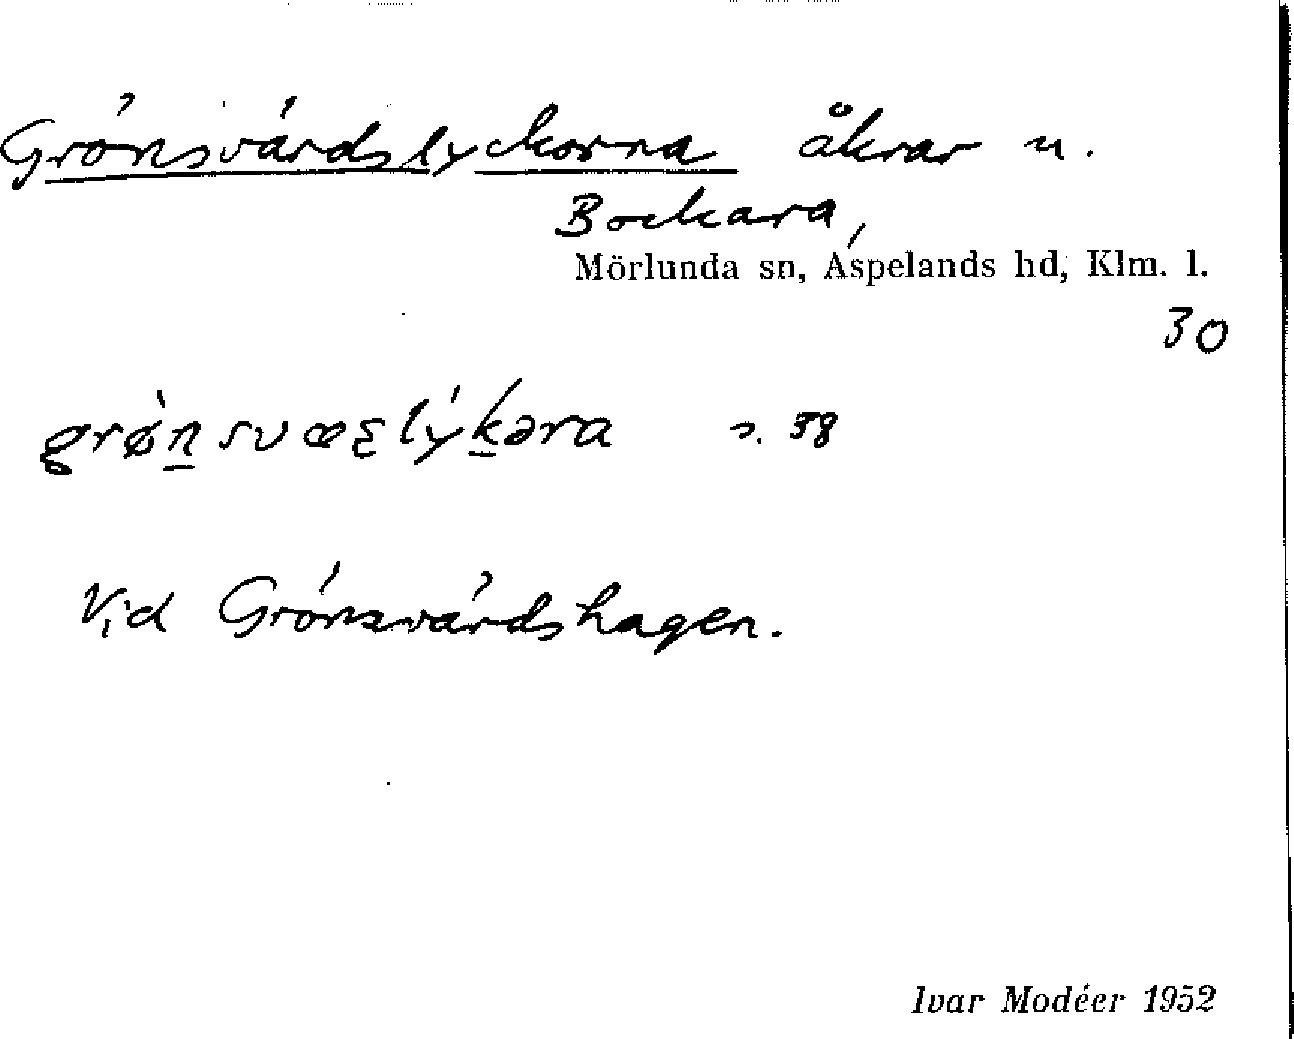 Grönsvärdslyckorna åkrar u.
Bockara,
Mörlunda sn, Aspelands hd, Klm. l.
30
grø̀n̲svæʂlýk̲əra s. 38
Vid Grönsvärdshagen.
Ivar Modéer 1952